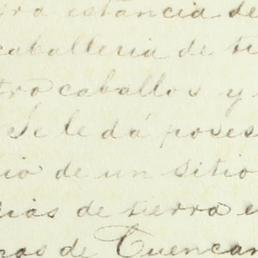 tra estancia de
caballeria de ti
tro caballos y
Se le dá poses
io de un sitio
rias de tierra e
ras de Cuencam